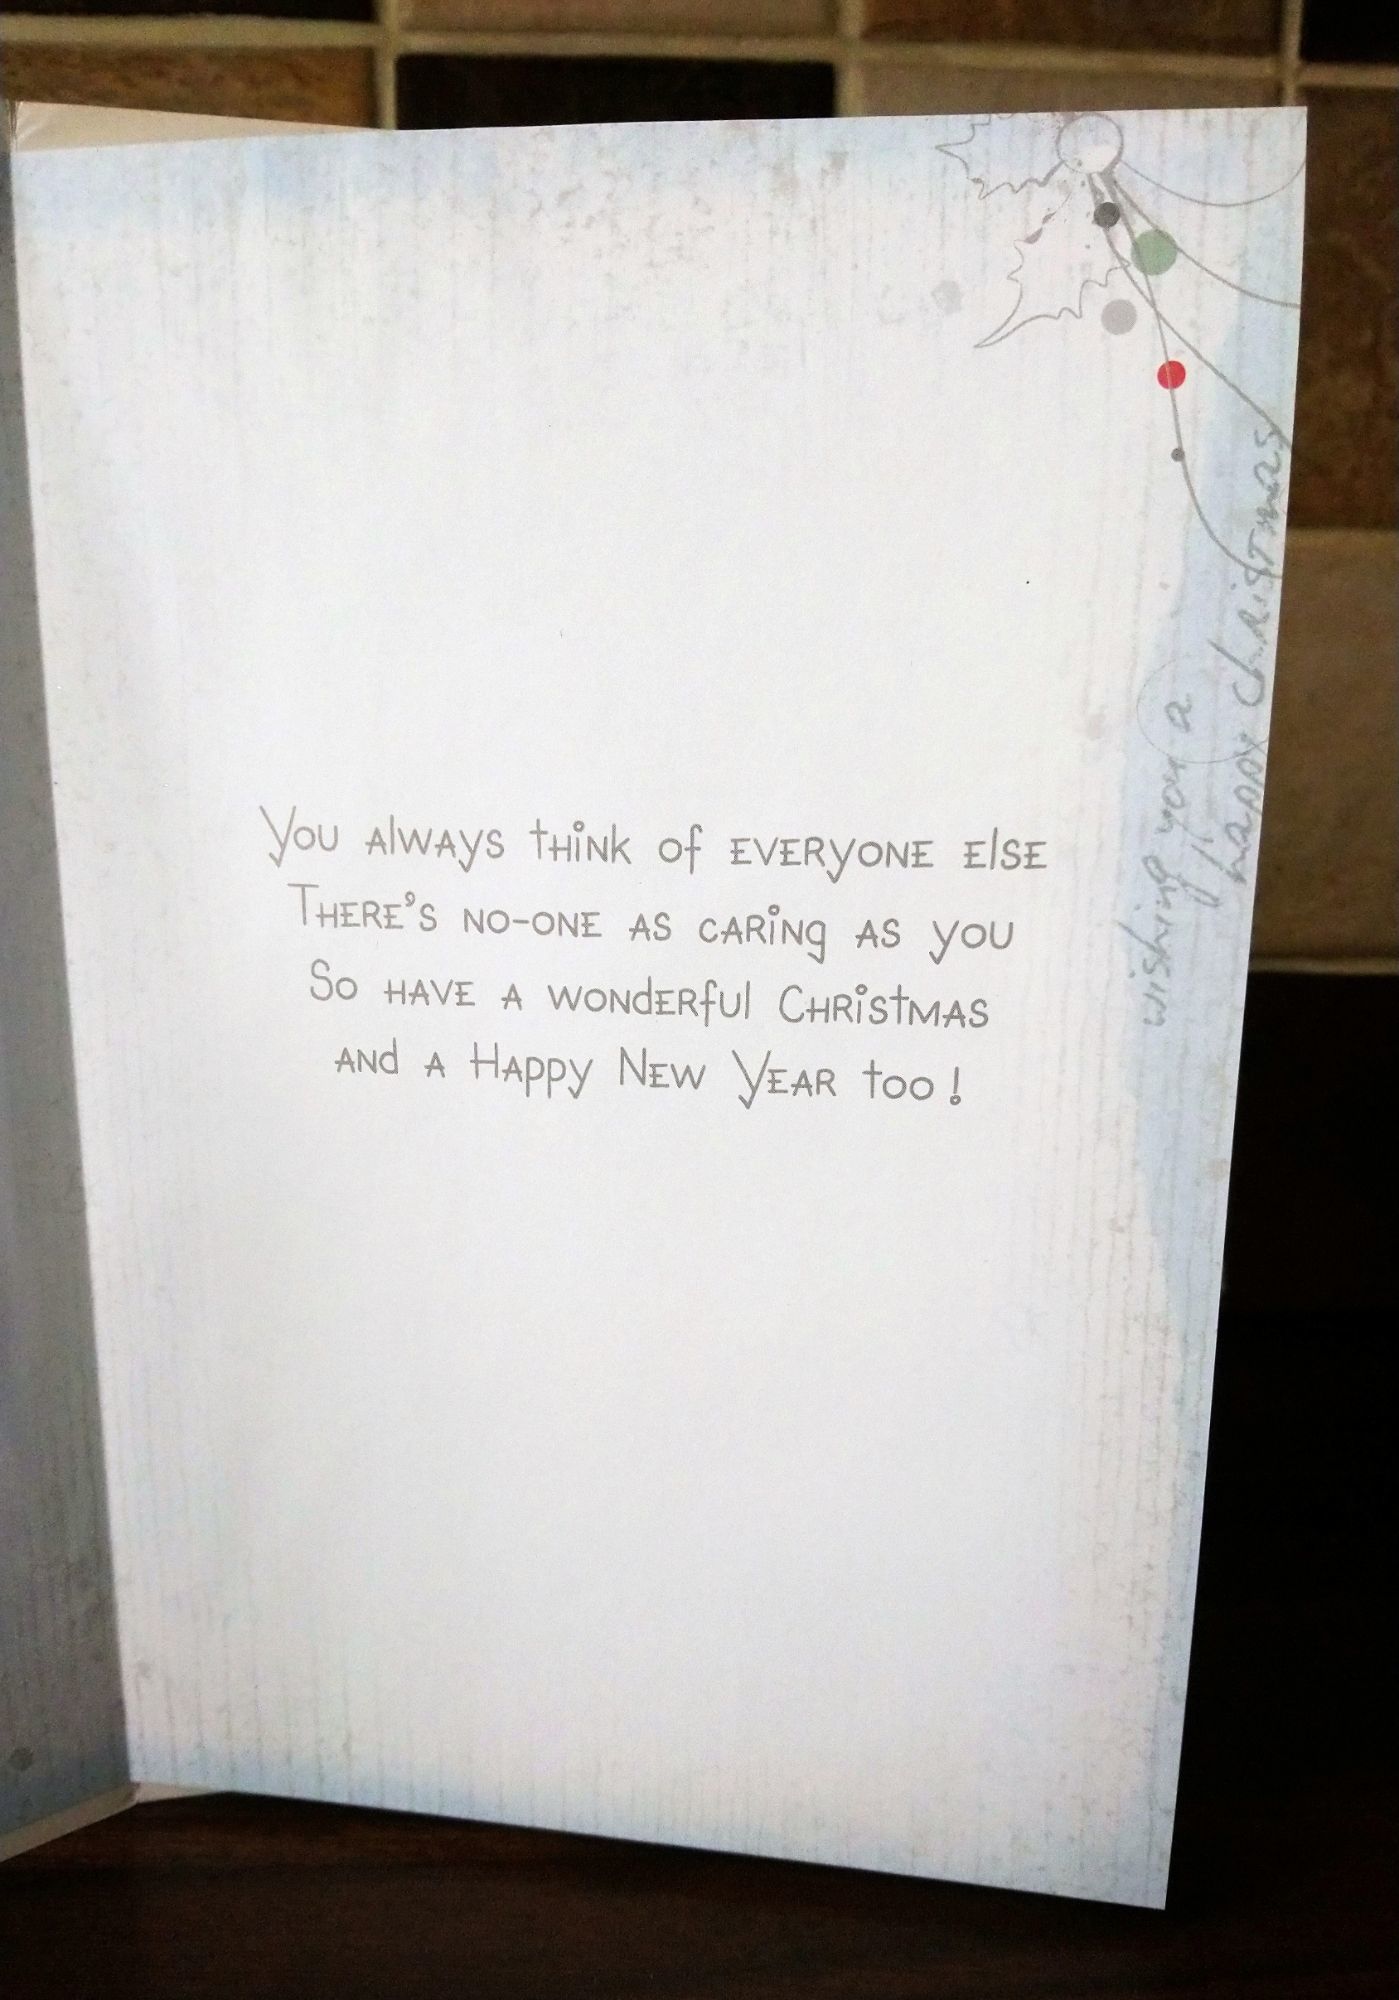 You always think of everyone else
There's no-one as caring as you
So have a wonderful Christmas
and a Happy New Year too!
wishing you a
happy christmas